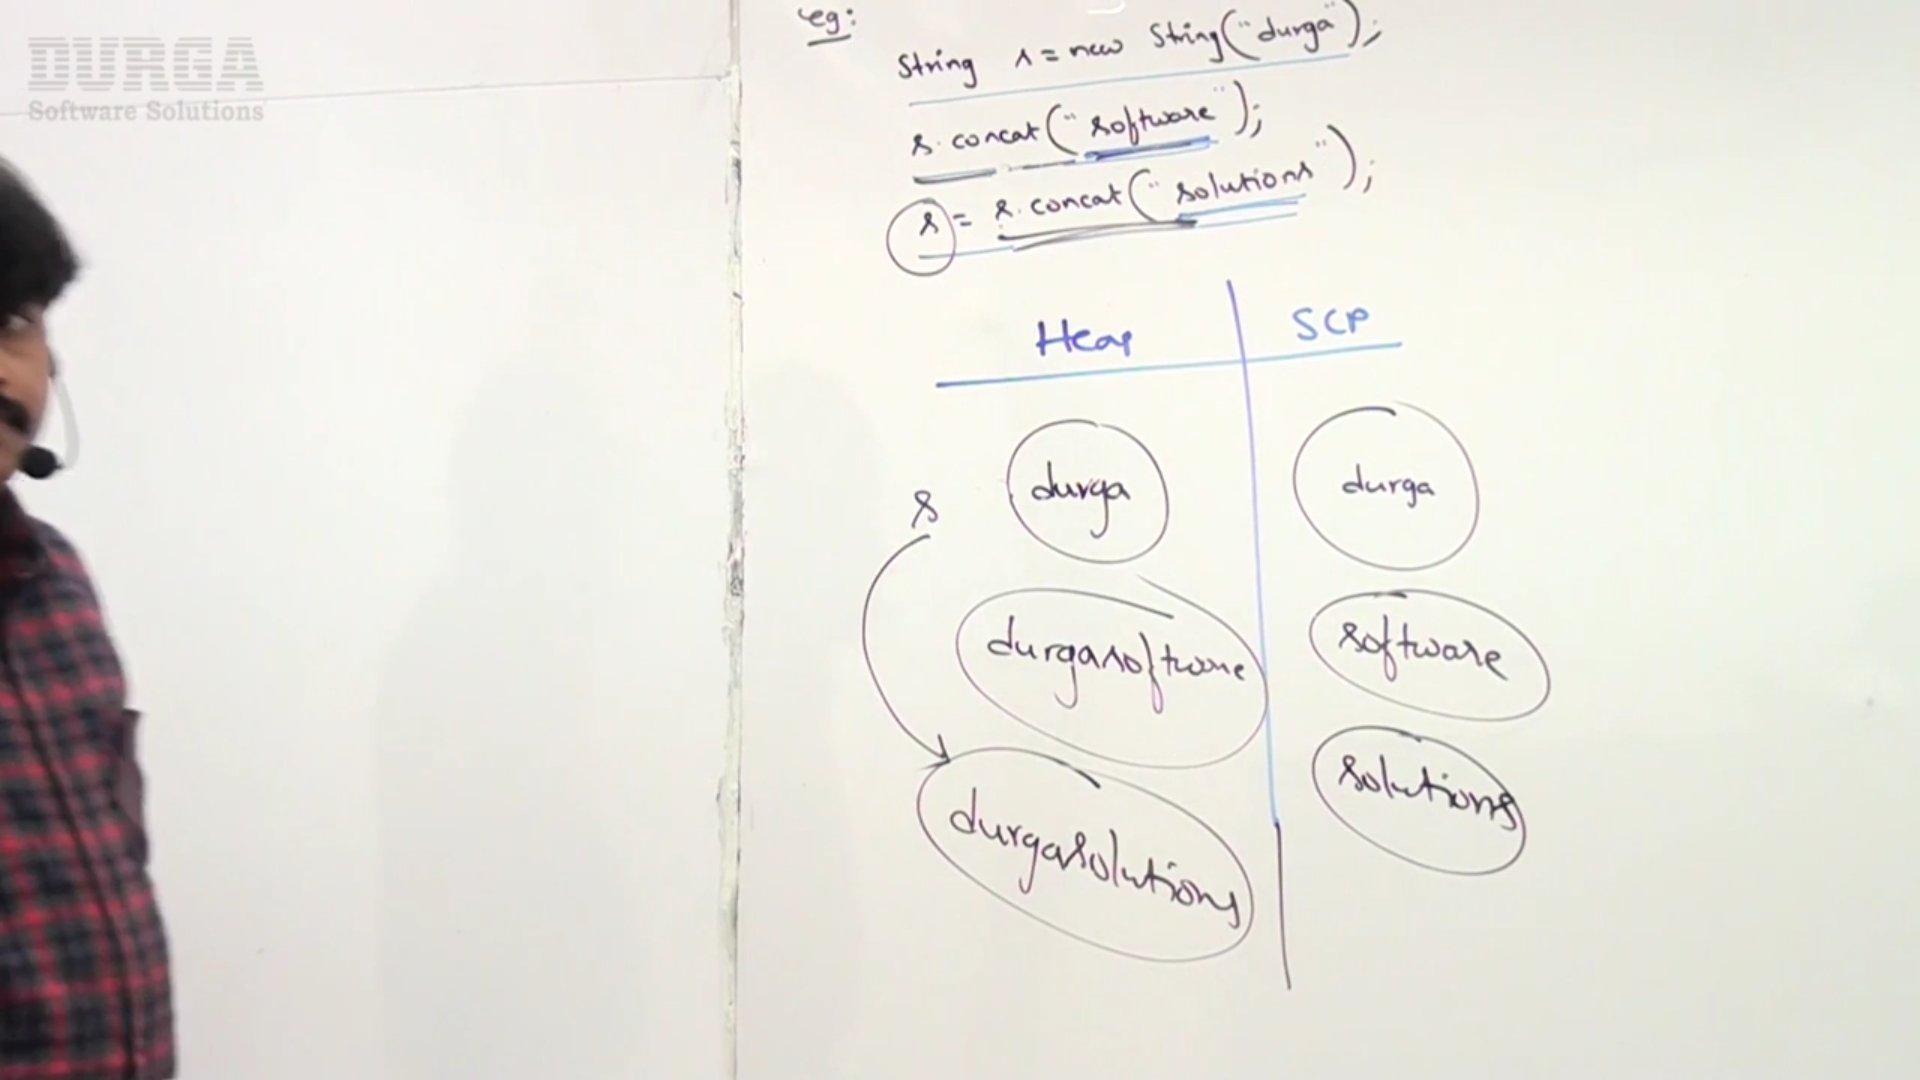 DURGA
Software Solutions
eg:
String s = new String("durga");
s.concat("software");
s = s.concat("solutions");
Heap SCP
s durga durga
durgasoftware software
durgasolutions solutions